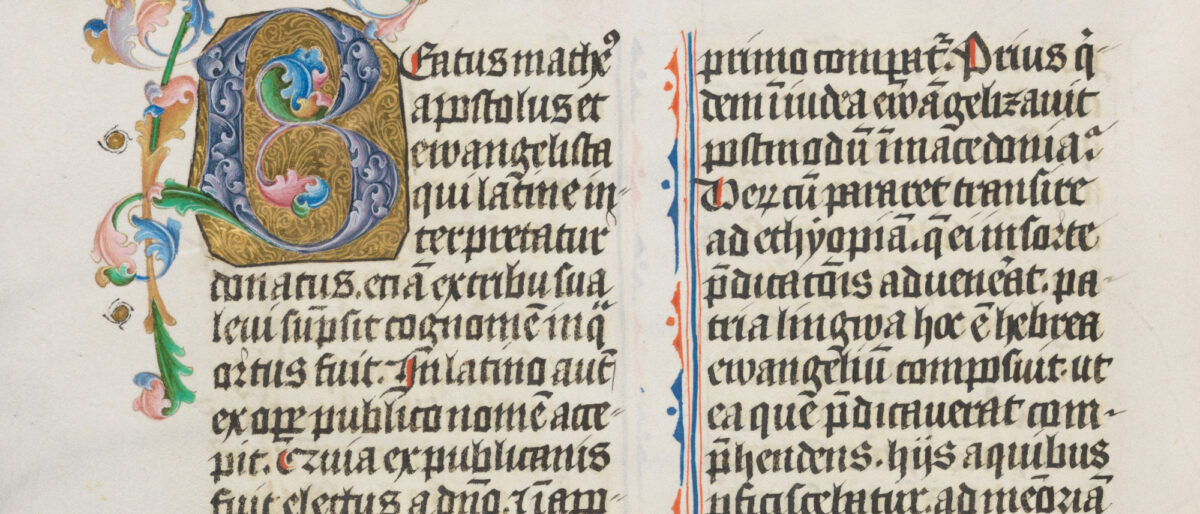 BEatus mathe⁹
apostolus et
ewangelista
qui latine in-
terpretatur
donatus. etiā ex tribu sua
leui sūpsit cognomē in qͣ
ortus fuit. In latino autē
ex oꝑe publico nomē acce-
pit. Q̄uia ex publicanis
fuit electus a dn̄o.
primo comꝑat᷑. Prius qͥ-
dem ī iudea ewāgelizauit
postmodū ī macedonia.
cū pararet transire
ad ethyopiā. q̄ ei in sorte
p̄dicatōnis aduenēat. pa-
tria lingwa hoc ē hebrea
ewangeliū composuit. ut
ea quē p̄dicauerat com-
p̄hendens. hijs a quibus
ꝓficiscebatur. ad memōriā